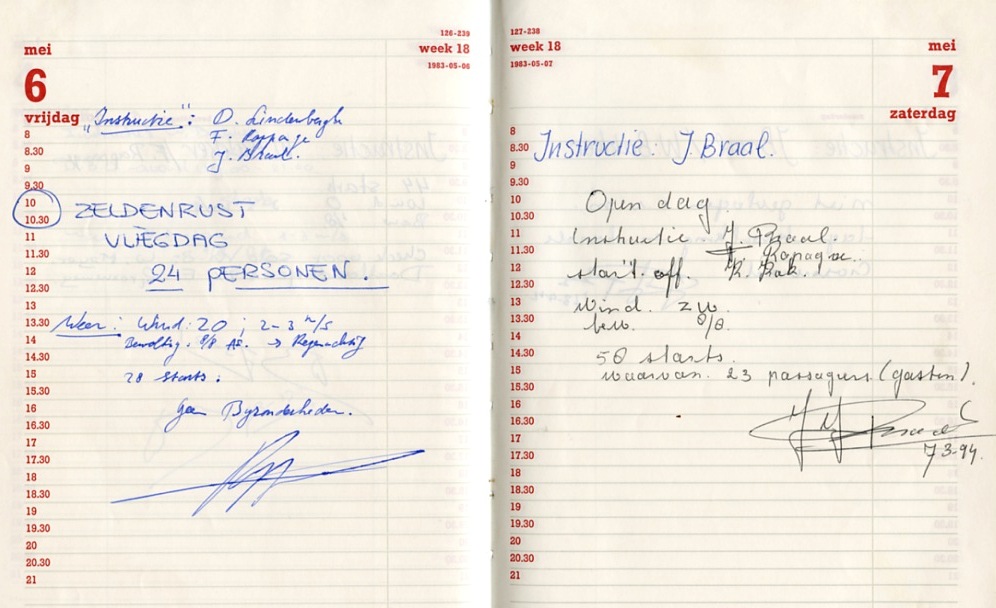 126-239
mei
week 18
6
1983-05-06
vrijdag
„Instructie": O. Lindenbergh
F.
J. Braal.
8
8.30
9
9.30
10
10.30
ZELDENRUST
VLIEGDAG
24 PERSONEN.
11
11.30
12
12.30
13
13.30
Weer: Wind: ZO ; 2-3 m/s
14
8/8 AS. → Regenachtig
14.30
15
28 starts.
15.30
16
Geen Byzonderheden.
16.30
17
17.30
18
18.30
19
19.30
20
20.30
21
127-238
week 18
mei
1983-05-07
7
zaterdag
8
8.30
Instructie: J. Braal.
9
9.30
10
Open dag
10.30
11
Instructie J. Braal.
11.30
F. Rapagne.
12
start off. K. Kok.
12.30
13
Wind. ZW.
13.30
bew. 8/8.
14
14.30
58 starts.
15
waarvan. 23 passagiers (gasten).
15.30
16
16.30
17
7-3-94.
17.30
18
18.30
19
19.30
20
20.30
21